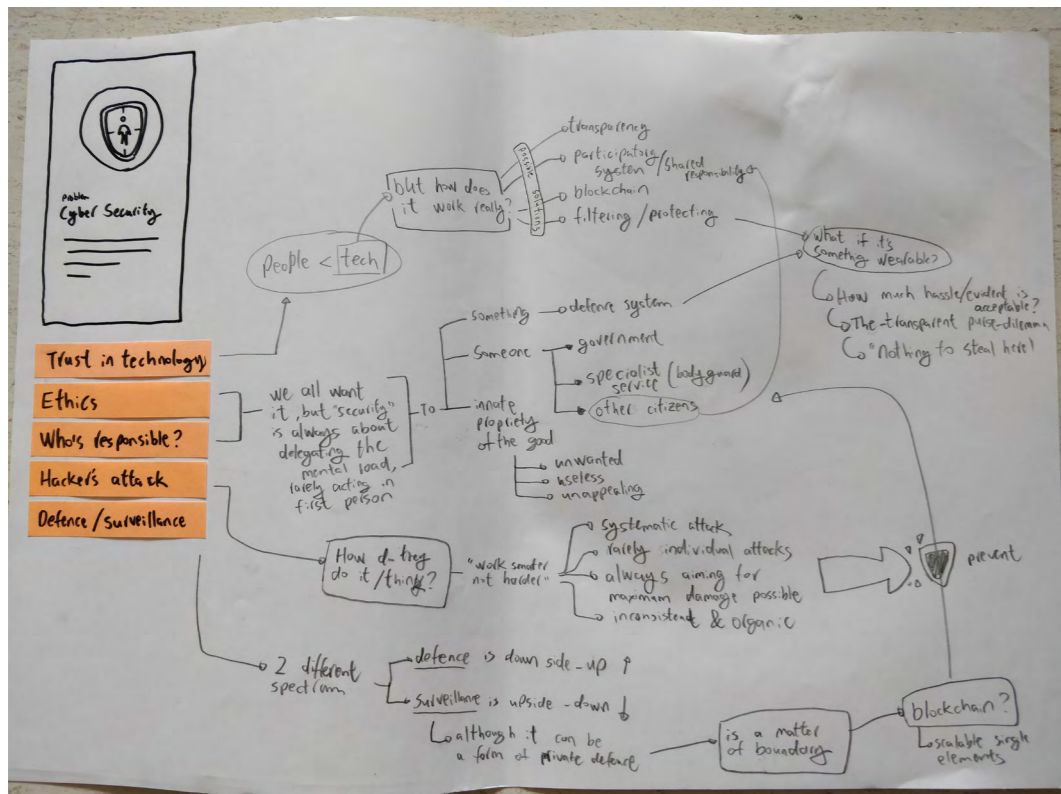 Problem
Cyber Security
Trust in technology
Ethics
Who's responsible?
Hacker's attack
Defence / surveillance
people < tech
but how does
it work really?
possible solutions
transparency
participatory
system / shared
responsibility
blockchain
filtering / protecting
what if it's
somethig wearable?
How much hassle/evident is
acceptable?
The transparent purse-dilemma
"Nothing to steal here!
we all want
it, but "security"
is always about
delegating the
mental load,
rarely acting in
first person
TO
something
defence system
someone
government
specialist
service (bodyguard)
other citizens
innate
propriety
of the good
unwanted
useless
unappealing
How do they
do it / think?
"work smater
not harder"
systematic attack
rarely individual attacks
always aiming for
maximum damage possible
inconsistent & organic
prevent
2 different
spectrum
defence is down side-up ↑
surveillance is upside-down ↓
although it can be
a form of private defence
is a matter
of boundary
blockchain?
scalable single
elements